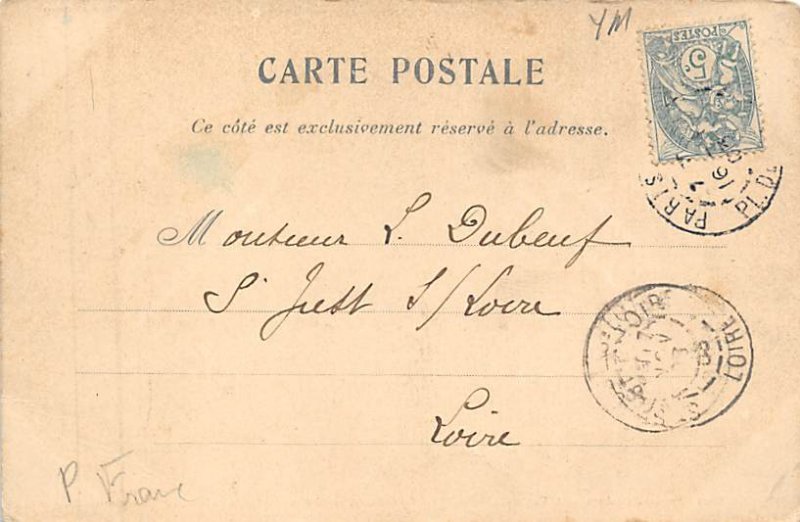 YM
POSTES
5c
CARTE POSTALE
Ce côté est exclusivement réservé à l'adresse.
PARIS
PL. DE
16
Monsieur L. Dubeuf
St Just S/Loire
LOIRE
Loire
P. Franc